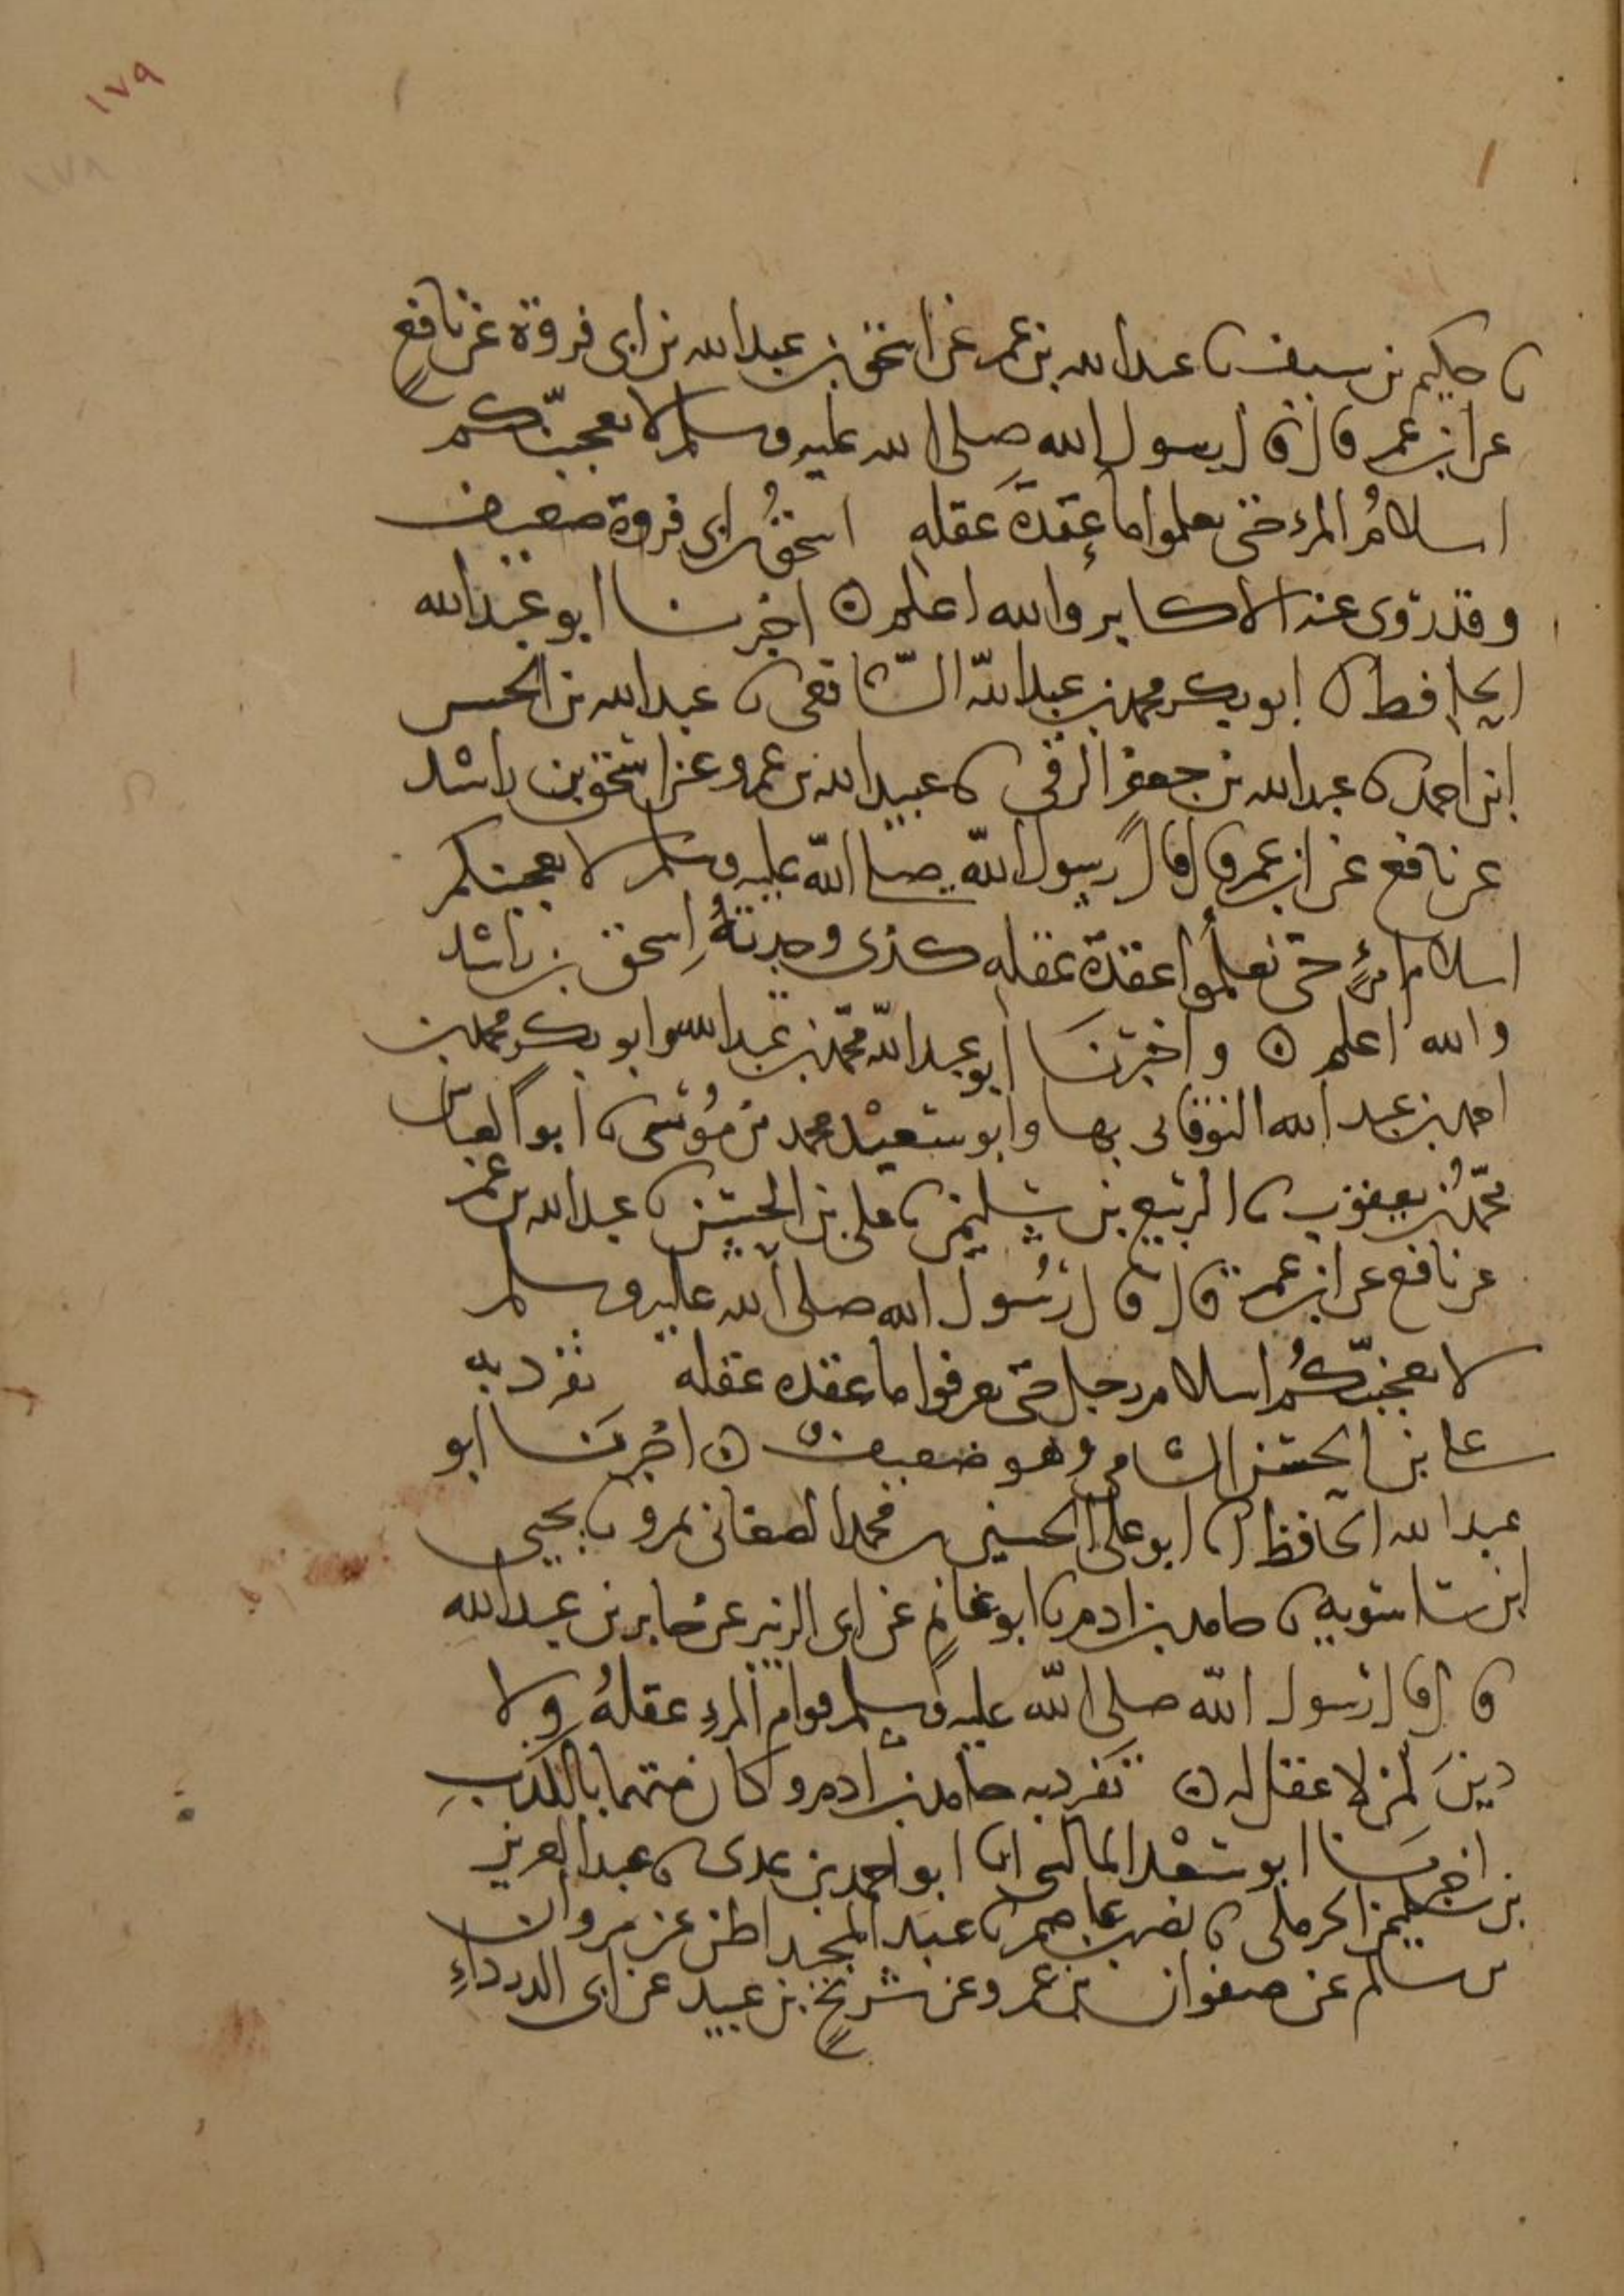 ١٧٩
١٧٨
نا حكيم بن سيف نا عبد الله بن عمر عن اسحق بن عبد الله بن ابى فروة عن نافع
عن ابن عمر قال قال رسول الله صلى الله عليه وسلم لا يعجبنّكم
اسلامُ المرء حتى تعلموا ما عقدة عَقله اسحقُ بن ابى فروة ضعيف
وقد روى عنه الاكابر والله اعلم ن اخبرنا ابو عبد الله
الحافظ انا ابو بكر محمد بن عبد اللّه الشّافعى نا عبد الله بن الحسن
ابن احمد نا عبد الله بن جعفر الرقى نا عبيد الله بن عمرو عن اسحق بن راشد
عن نافع عن ابن عمر قال قال رسول اللّه صلى اللّه عليه وسلم لا يعجبنكم
اسلام امرئٍ حتى تعلمُوا عقدة عقله كذى وجدتهُ اِسحق بن راشد
والله اعلم ن واخبرنَا ابو عبد اللّه محمّد بن عبد الله وابو بكر محمد بن
احمد بن عبد الله النوقانى بها وابو سعيْد محمد بن مُوسى نا ابو العباس
محمّدُ بن يعقوب نا الربيع بن سليمن نا على بن الحسن نا عبد الله بن عمر
عن نافع عن ابن عمر قال قال رسُول الله صلى الله عليه وسلم
لا يعجبنّكُم اسلام رجل حتى تعرفوا ما عقده عقله تفرد به
على بن الحسن الشامى وهو ضعيف ن اخبرنَا ابو
عبد الله الحافظ انا ابو على الحسين بن محمد الصغانى بمرو نا يحيى
ابن ساسويه نا حامد بن ادم نا ابو غانمٍ عن ابى الزبير عن جابر بن عبد الله
قال قال رسول اللّه صلى اللّه عليه وسلم قوام المرءِ عقلهُ ولا
دينَ لمن لا عقل له ن تفرد به حامد بن ادم وكان متهما بالكذبِ
اخبرنَا ابو سعْد المالينى انا ابو احمد بن عدى نا عبد العزيز
بن سليمن الحرملى نا نصر بن عاصم نا عبد المجيد اظن عن مروان
بن سالم عن صفوان بن عمرو عن شريحٍ بن عبيد عن ابى الدرداءِ